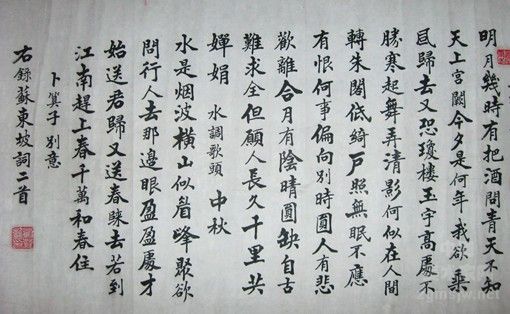 明月幾時有把酒問青天不知
天上宮闕今夕是何年我欲乘
風歸去又恐瓊樓玉宇高處不
勝寒起舞弄清影何似在人間
轉朱閣低綺戶照無眠不應
有恨何事偏向別時圓人有悲
歡離合月有陰晴圓缺自古
難求全但願人長久千里共
嬋娟 水調歌頭 中秋
水是烟波橫山似眉峰聚欲
問行人去那邊眼盈盈處才
始送君歸又送春歸去若到
江南趕上春千萬和春住
卜算子 別意
右錄蘇東坡詞二首